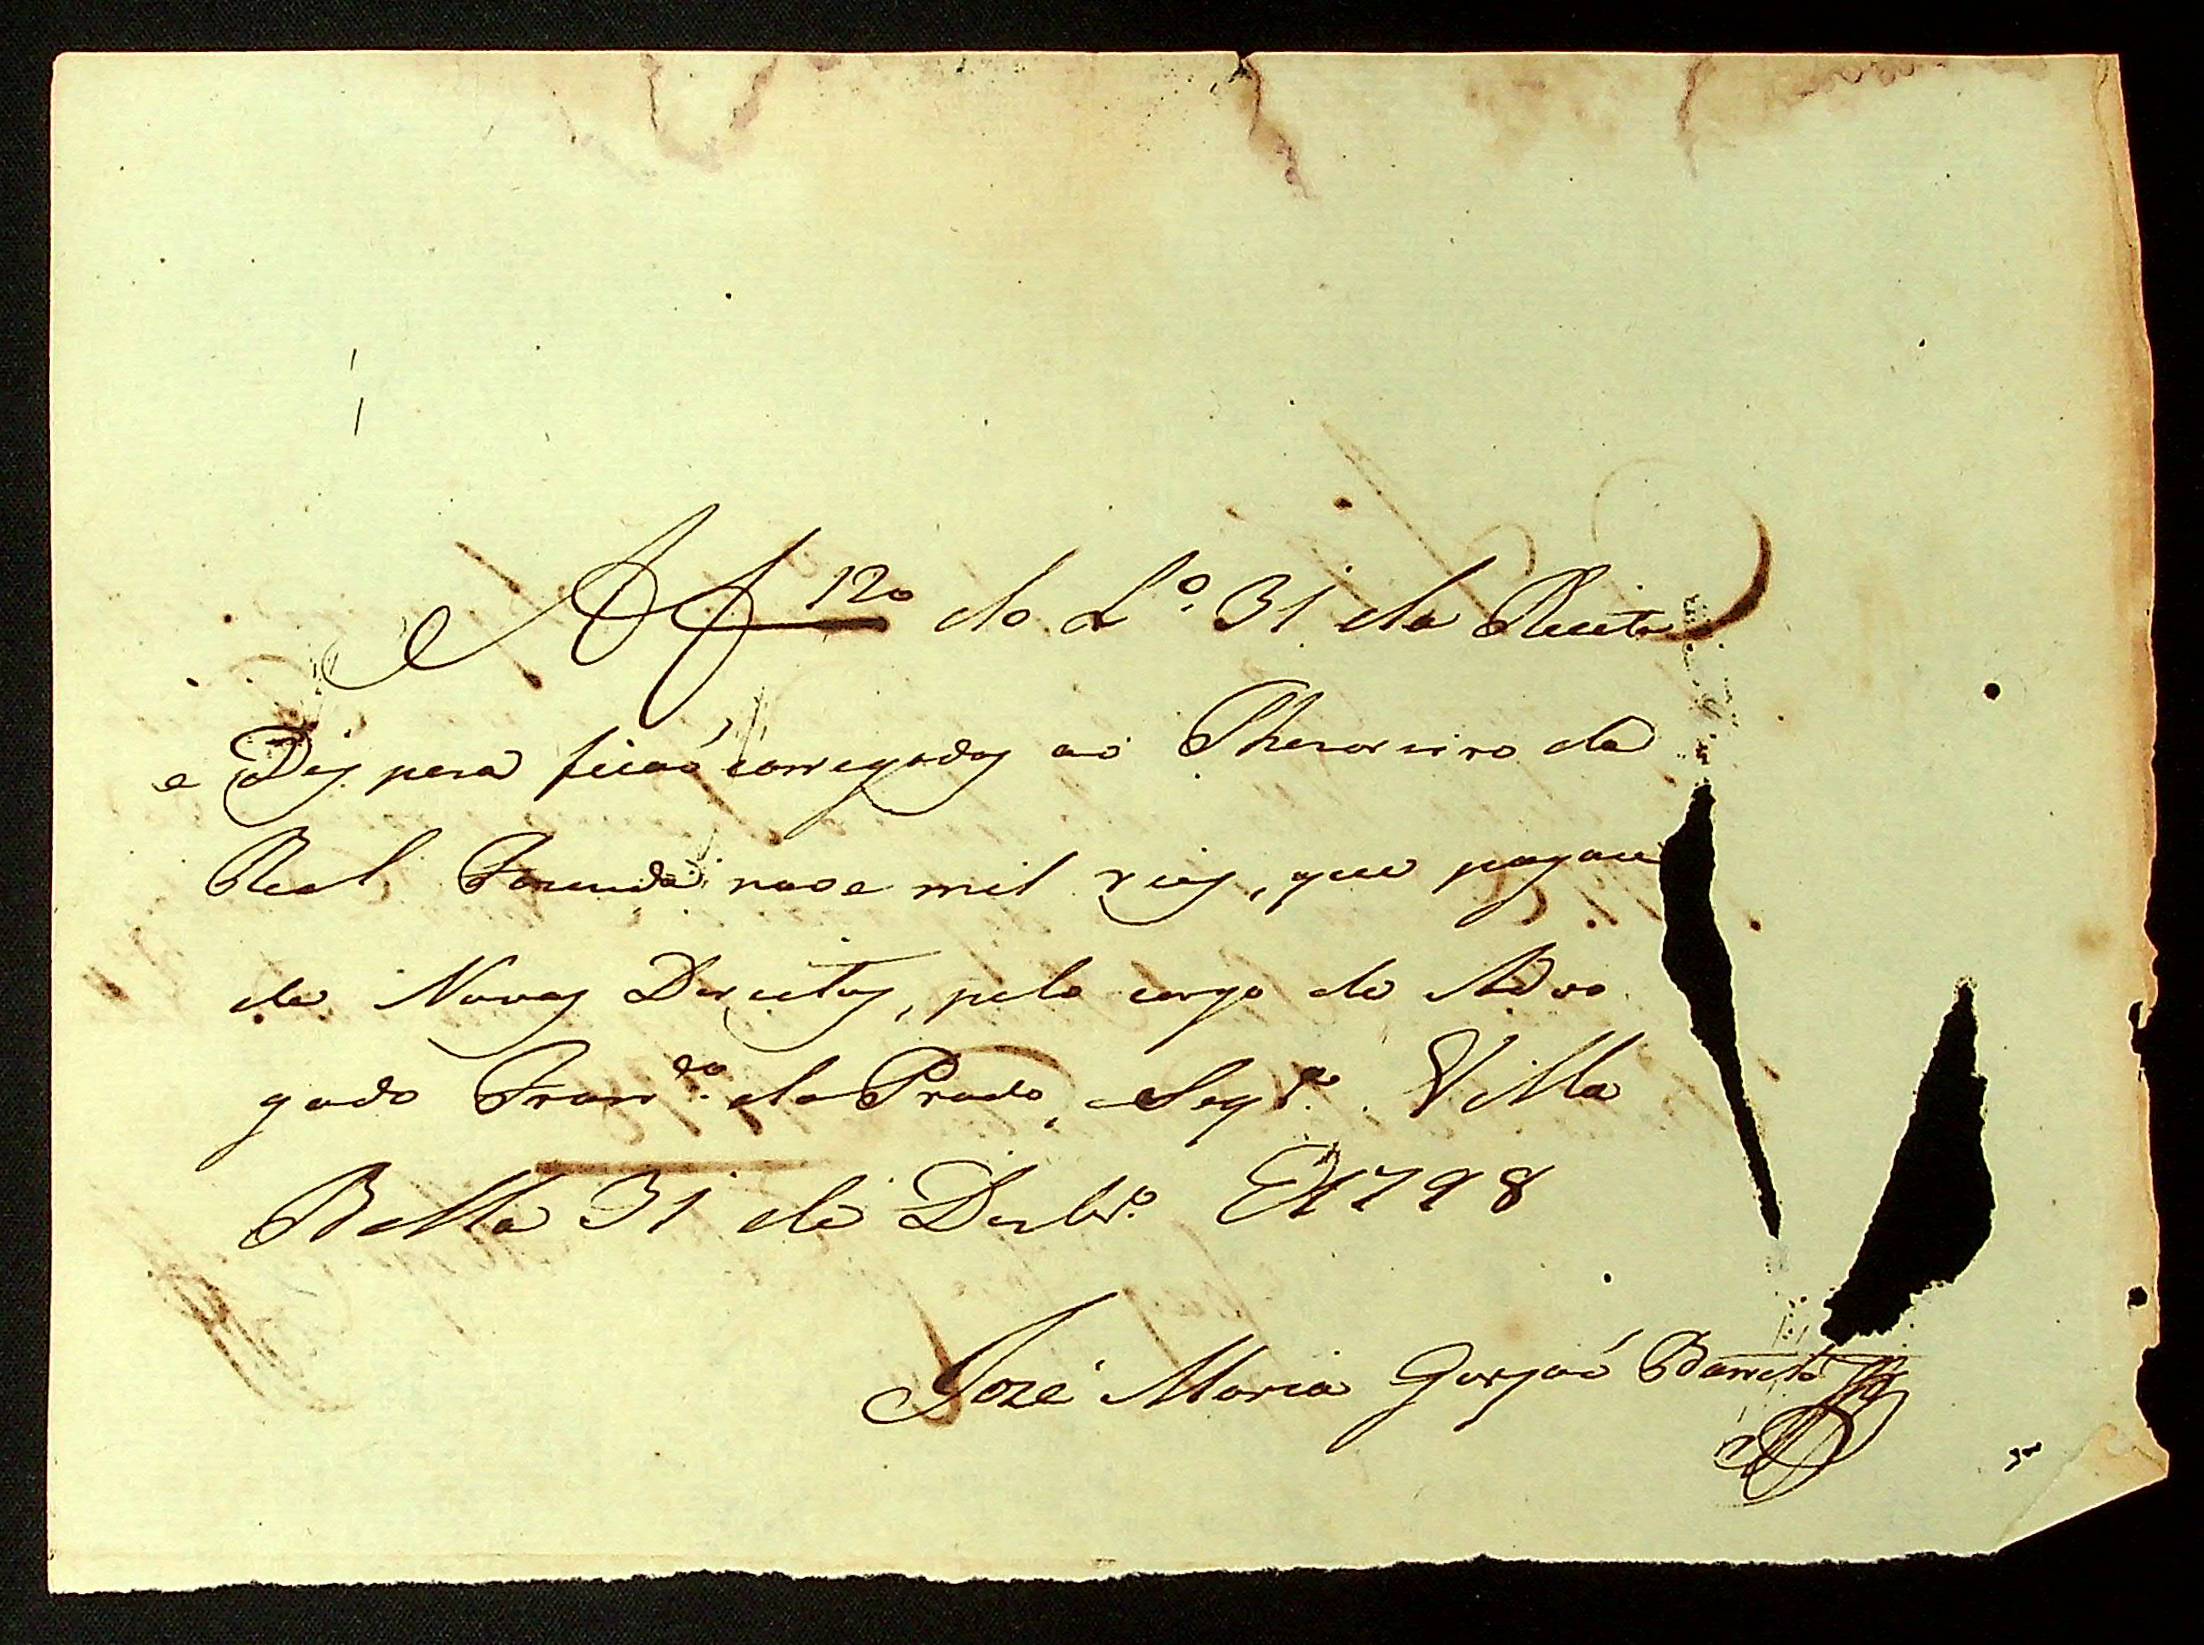 A f 120 do L.º 31 da Receita
e Desp.ª ficaó carregados ao Thesoureiro da
Real Fazenda nove mil reis, que pagou
de Novos Direitos, pelo cargo de Advo
gado Fran.do do Prado Seqr.ª Villa
Bella 31 de Dezbr.º de 1798
Jozé Maria Gorjaó Barreto